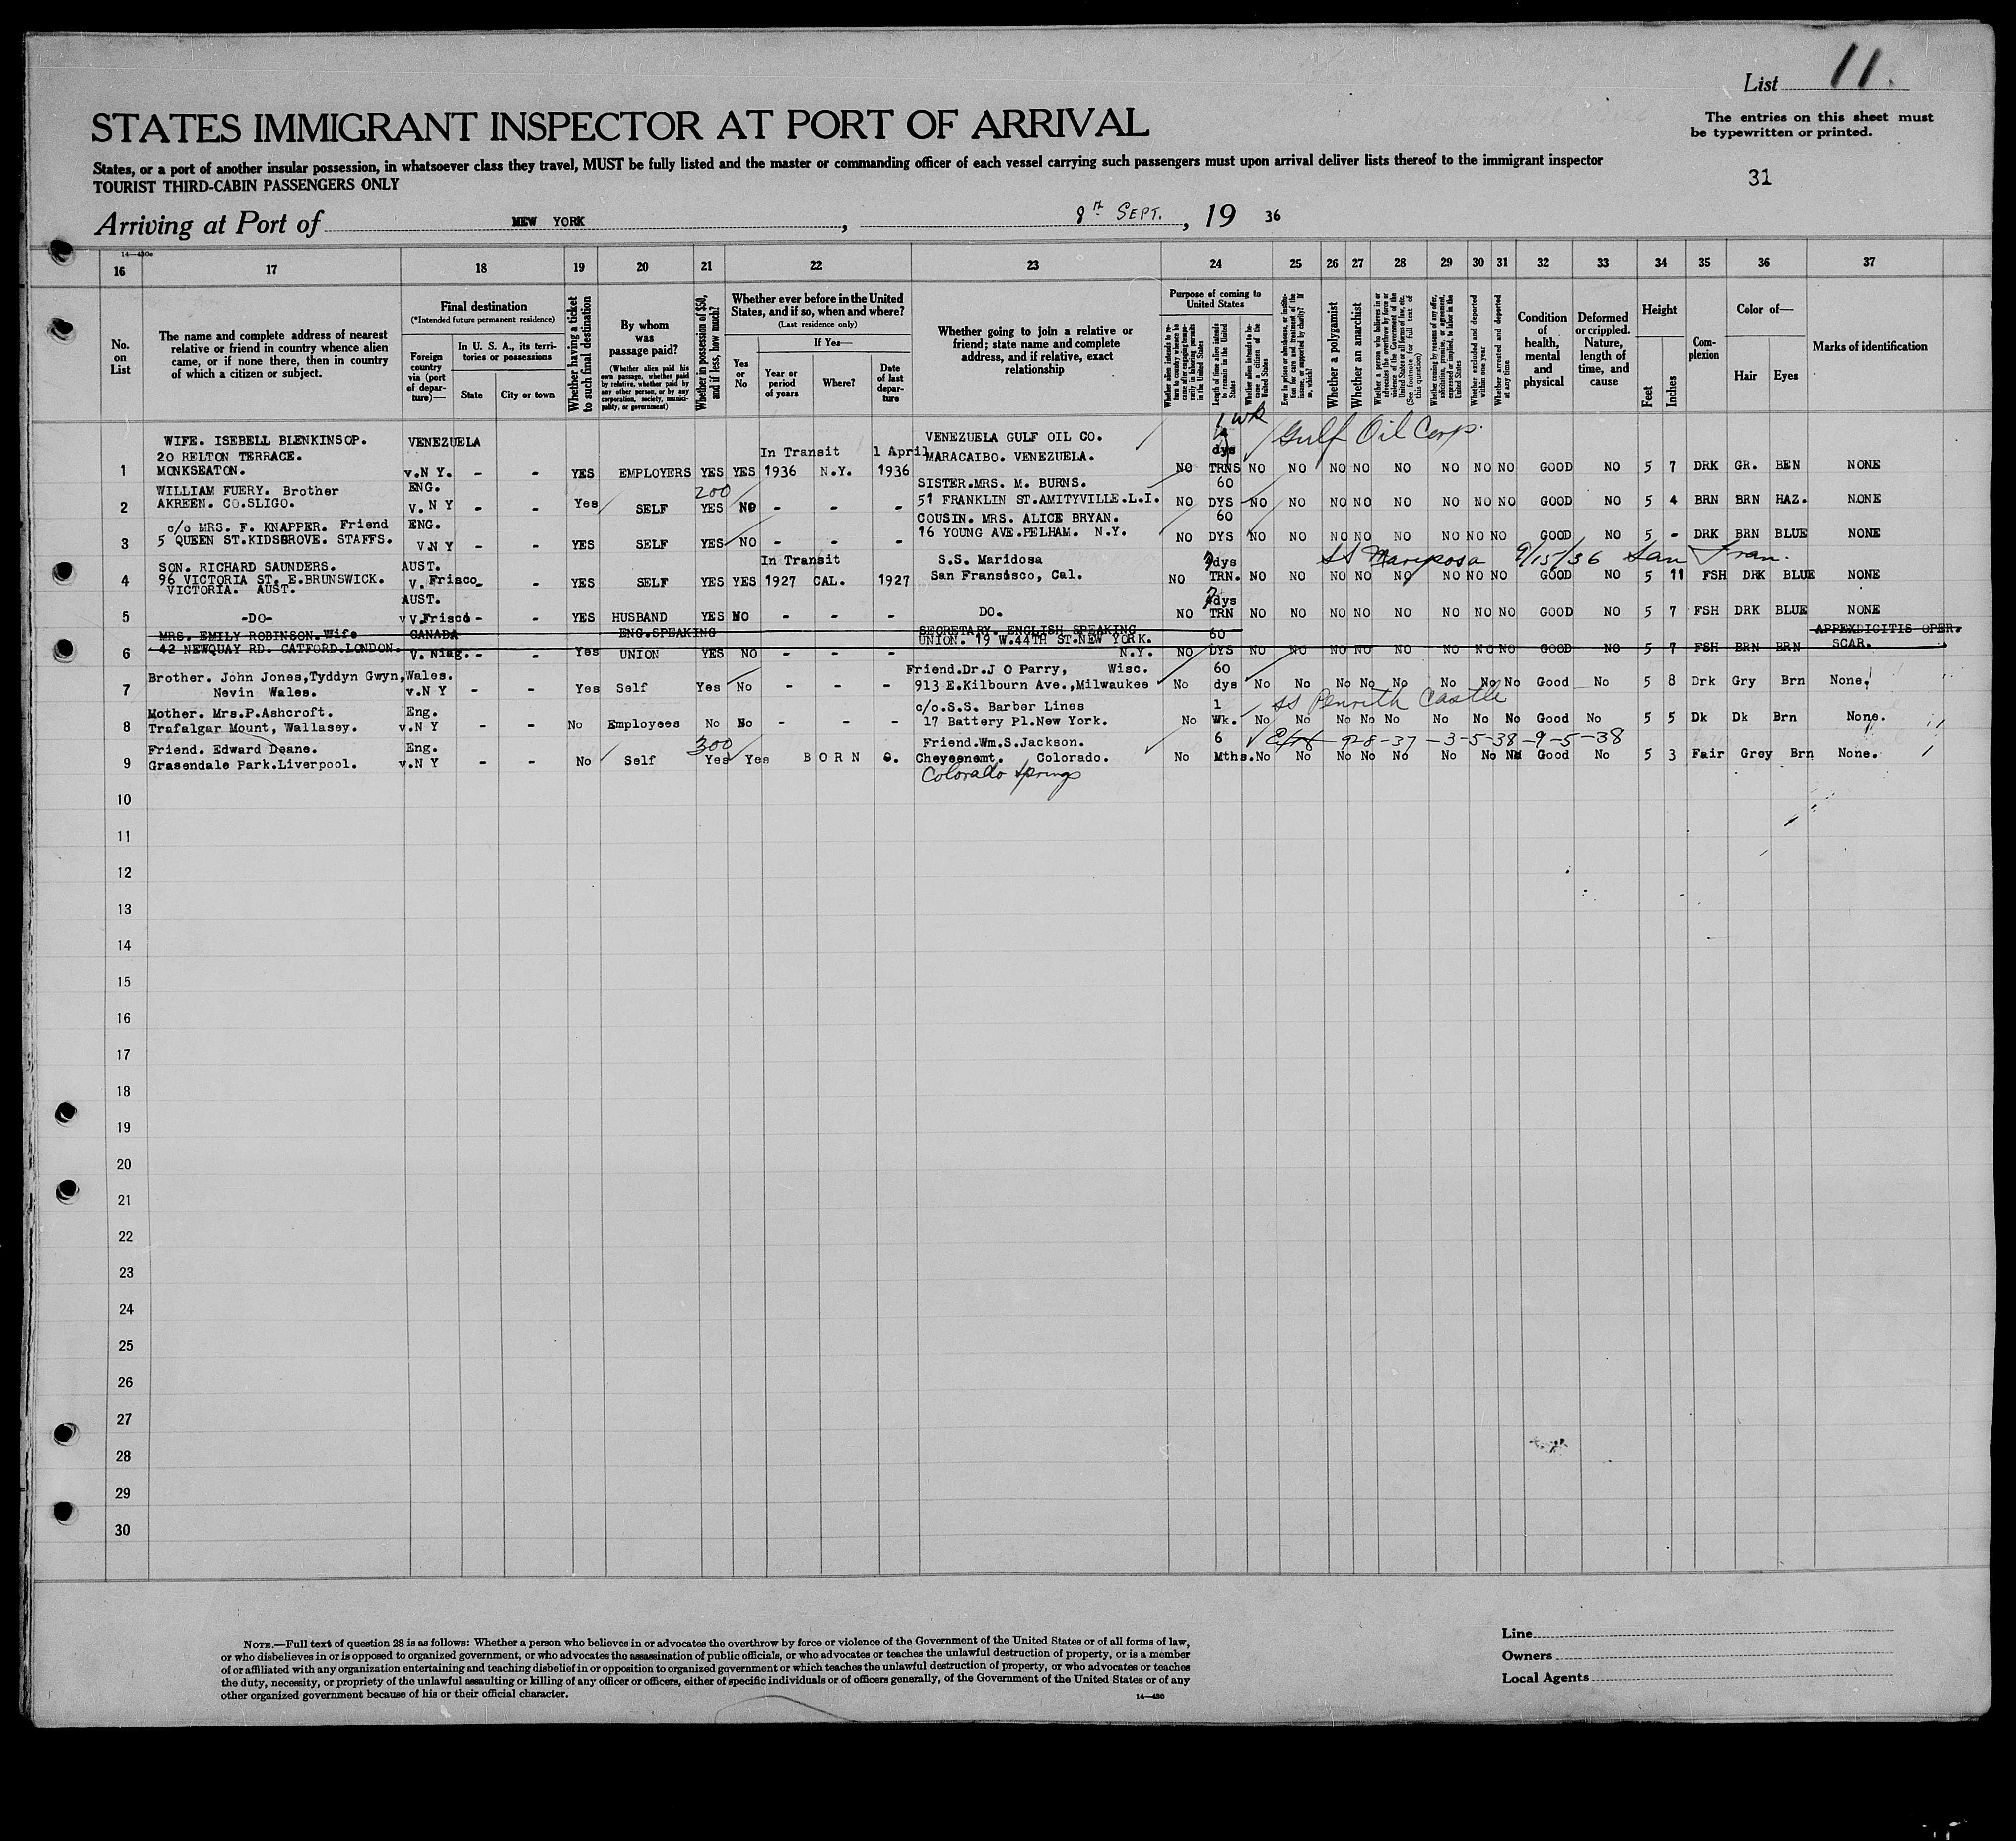 List 11.
The entries on this sheet must
be typewritten or printed.
31
STATES IMMIGRANT INSPECTOR AT PORT OF ARRIVAL
States, or a port of another insular possession, in whatsoever class they travel, MUST be fully listed and the master or commanding officer of each vessel carrying such passengers must upon arrival deliver lists thereof to the immigrant inspector
TOURIST THIRD-CABIN PASSENGERS ONLY
Arriving at Port of NEW YORK, 8th SEPT., 19 36
16 17 18 19 20 21 22 23 24 25 26 27 28 29 30 31 32 33 34 35 36 37
No. on List
The name and complete address of nearest
relative or friend in country whence alien
came, or if none there, then in country
of which a citizen or subject.
Final destination
(*Intended future permanent residence)
Foreign country via (port of departure)—
In U. S. A., its territories or possessions
State
City or town
Whether having a ticket to such final destination
By whom was passage paid?
(Whether alien paid his own passage, whether paid by relative, whether paid by any other person, or by any corporation, society, municipality, or government)
Whether in possession of $50, and if less, how much?
Whether ever before in the United States, and if so, when and where?
(Last residence only)
Yes or No
If Yes—
Year or period of years
Where?
Date of last departure
Whether going to join a relative or
friend; state name and complete
address, and if relative, exact
relationship
Purpose of coming to United States
Length of time alien intends to remain in the United States
Whether alien intends to become a citizen of the United States
Whether a polygamist
Whether an anarchist
Whether excluded and deported within one year
Whether arrested and deported at any time
Condition of health, mental and physical
Deformed or crippled. Nature, length of time, and cause
Height
Feet
Inches
Complexion
Color of—
Hair
Eyes
Marks of identification
WIFE. ISEBELL BLENKINSOP. VENEZUELA VENEZUELA GULF OIL CO. 1 wk Gulf Oil Corp.
20 RELTON TERRACE. In Transit 1 April MARACAIBO. VENEZUELA. dys
1 MONKSEATON. v.N Y. - - YES EMPLOYERS YES YES 1936 N.Y. 1936 NO TRNS NO NO NO NO NO NO NO NO GOOD NO 5 7 DRK GR. BEN NONE
WILLIAM FUERY. Brother ENG. 200 SISTER.MRS. M. BURNS. 60
2 AKREEN. CO.SLIGO. V. N Y - - Yes SELF YES NO - - - 51 FRANKLIN ST.AMITYVILLE.L.I. NO DYS NO NO NO NO NO NO NO NO GOOD NO 5 4 BRN BRN HAZ. NONE
c/o MRS. F. KNAPPER. Friend ENG. COUSIN. MRS. ALICE BRYAN. 60
3 5 QUEEN ST.KIDSGROVE. STAFFS. V.N Y - - YES SELF YES NO - - - 16 YOUNG AVE.PELHAM. N.Y. NO DYS NO NO NO NO NO NO NO NO GOOD NO 5 - DRK BRN BLUE NONE
SON. RICHARD SAUNDERS. AUST. In Transit S.S. Maridosa dys SS Mariposa 9/15/36 San Fran.
4 96 VICTORIA ST. E.BRUNSWICK. V. Frisco - - YES SELF YES YES 1927 CAL. 1927 San Fransisco, Cal. NO TRN. NO NO NO NO NO NO NO NO GOOD NO 5 11 FSH DRK BLUE NONE
VICTORIA. AUST.
AUST. dys
5 -DO- v V.Frisco - - YES HUSBAND YES NO - - - DO. NO TRN NO NO NO NO NO NO NO NO GOOD NO 5 7 FSH DRK BLUE NONE
MRS. EMILY ROBINSON.Wife CANADA ENG.SPEAKING SECRETARY. ENGLISH SPEAKING 60 APPEXDICITIS OPER.
6 42 NEWQUAY RD. CATFORD.LONDON. V. Niag. - - Yes UNION YES NO - - - UNION. 19 W.44TH ST.NEW YORK. N.Y. NO DYS NO NO NO NO NO NO NO NO GOOD NO 5 7 FSH BRN BRN SCAR.
Brother. John Jones,Tyddyn Gwyn, Wales. Friend.Dr.J O Parry, Wisc. 60
7 Nevin Wales. v.N Y - - Yes Self Yes No - - - 913 E.Kilbourn Ave.,Milwaukee No dys No No No No No No No No Good No 5 8 Drk Gry Brn None.
Mother. Mrs.P.Ashcroft. Eng. c/o.S.S. Barber Lines 1 SS Penrith Castle
8 Trafalgar Mount, Wallasey. v.N Y - - No Employees No No - - - 17 Battery Pl.New York. No Wk. No No No No No No No No Good No 5 5 Dk Dk Brn None.
Friend. Edward Deane. Eng. 300 Friend.Wm.S.Jackson. 6 9-8-37 -3-5-38-9-5-38
9 Grasendale Park.Liverpool. v.N Y - - No Self Yes Yes BORN Cheyeenemt. Colorado. No Mths. No No No No No No No Good No 5 3 Fair Grey Brn None.
Colorado Springs
10
11
12
13
14
15
16
17
18
19
20
21
22
23
24
25
26
27
28
29
30
NOTE.—Full text of question 28 is as follows: Whether a person who believes in or advocates the overthrow by force or violence of the Government of the United States or of all forms of law,
or who disbelieves in or is opposed to organized government, or who advocates the assassination of public officials, or who advocates or teaches the unlawful destruction of property, or is a member
of or affiliated with any organization entertaining and teaching disbelief in or opposition to organized government or which teaches the unlawful destruction of property, or who advocates or teaches
the duty, necessity, or propriety of the unlawful assaulting or killing of any officer or officers, either of specific individuals or of officers generally, of the Government of the United States or of any
other organized government because of his or their official character.
14—430
Line
Owners
Local Agents